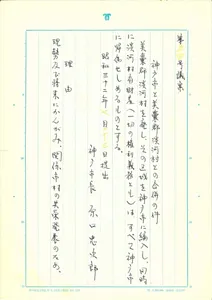 第 号議案
神戸市と美嚢郡淡河村との合併の件
美嚢郡淡河村を廃し、その区域を神戸市に編入し、同時
に淡河村有財産(一切の権利義務とも)はすべて神戸市
に帰属せしめるものとする。
昭和三十二年 月 十 日提出
神戸市長 原口忠次郎
理由
現勢及び将来にかんがみ、関係市村の共栄発展のため。